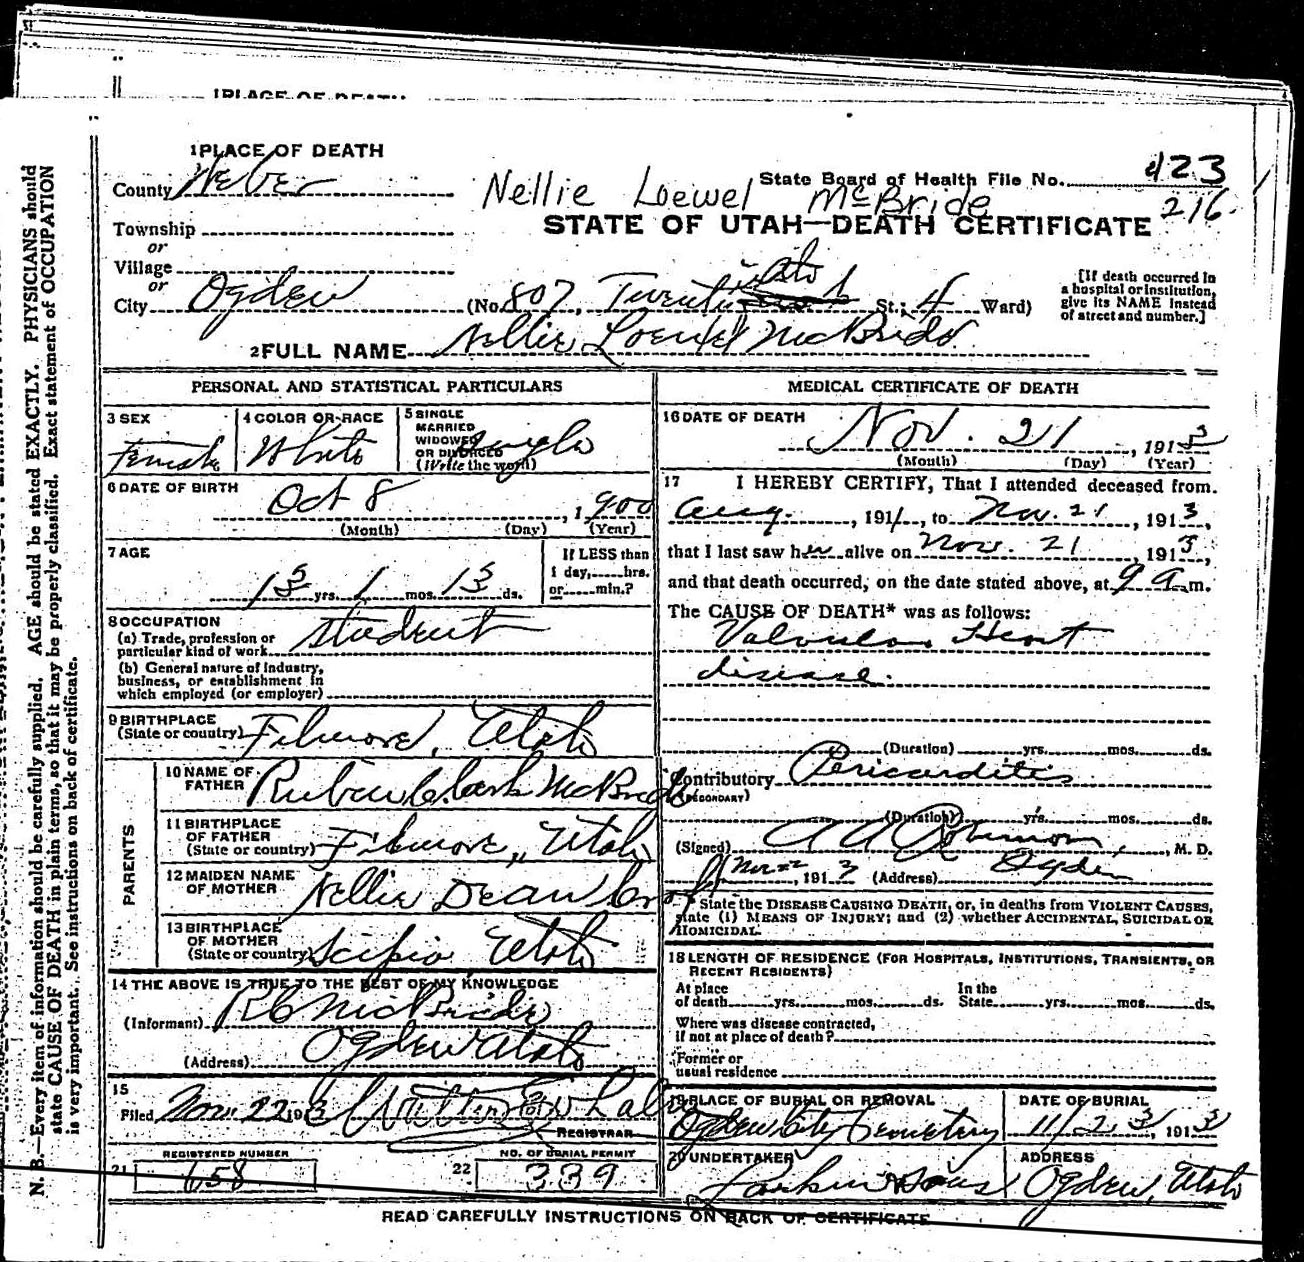 1 PLACE OF DEATH
1 PLACE OF DEATH
County Weber
State Board of Health File No. 423
Nellie Loewel McBride
216
Township
STATE OF UTAH—DEATH CERTIFICATE
or
Village
or
City Ogden (No. 807, Twenti St.; 4 Ward)
[If death occurred in a hospital or institution, give its NAME instead of street and number.]
2 FULL NAME Nellie Loewel McBride
PERSONAL AND STATISTICAL PARTICULARS
3 SEX Female
4 COLOR OR RACE White
5 SINGLE MARRIED WIDOWED OR DIVORCED (Write the word) Single
6 DATE OF BIRTH Oct 8, 1900
(Month) (Day) (Year)
7 AGE 13 yrs. 1 mos. 13 ds.
If LESS than 1 day, hrs. or min.?
8 OCCUPATION
(a) Trade, profession or particular kind of work Student
(b) General nature of Industry, business, or establishment in which employed (or employer)
9 BIRTHPLACE (State or country) Filmore, Utah
PARENTS
10 NAME OF FATHER Ruben Clark McBride
11 BIRTHPLACE OF FATHER (State or country) Filmore, Utah
12 MAIDEN NAME OF MOTHER Nellie Dean Croft
13 BIRTHPLACE OF MOTHER (State or country) Scipio, Utah
14 THE ABOVE IS TRUE TO THE BEST OF MY KNOWLEDGE
(Informant) R C McBride
(Address) Ogden Utah
15
Filed Nov. 22 1913
REGISTRAR
21 REGISTERED NUMBER 658
22 NO. OF BURIAL PERMIT 339
MEDICAL CERTIFICATE OF DEATH
16 DATE OF DEATH Nov. 21, 1913
(Month) (Day) (Year)
17 I HEREBY CERTIFY, That I attended deceased from
Aug., 191, to Nov. 21, 1913,
that I last saw her alive on Nov. 21, 1913,
and that death occurred, on the date stated above, at 9 a m.
The CAUSE OF DEATH* was as follows:
Valvular Heart
disease.
(Duration) yrs. mos. ds.
Contributory Pericarditis
(SECONDARY)
(Duration) yrs. mos. ds.
(Signed) A A Robinson, M. D.
Nov 22, 1913 (Address) Ogden
* State the DISEASE CAUSING DEATH, or, in deaths from VIOLENT CAUSES,
state (1) MEANS OF INJURY; and (2) whether ACCIDENTAL, SUICIDAL OR
HOMICIDAL.
18 LENGTH OF RESIDENCE (FOR HOSPITALS, INSTITUTIONS, TRANSIENTS, OR
RECENT RESIDENTS)
At place of death yrs. mos. ds. In the State yrs. mos. ds.
Where was disease contracted,
if not at place of death?
Former or
usual residence
19 PLACE OF BURIAL OR REMOVAL Ogden City Cemetery
DATE OF BURIAL 11/23, 1913
20 UNDERTAKER Larkin & Sons
ADDRESS Ogden, Utah
READ CAREFULLY INSTRUCTIONS ON BACK OF CERTIFICATE
N. B.—Every item of information should be carefully supplied. AGE should be stated EXACTLY. PHYSICIANS should
state CAUSE OF DEATH in plain terms, so that it may be properly classified. Exact statement of OCCUPATION
is very important. See instructions on back of certificate.